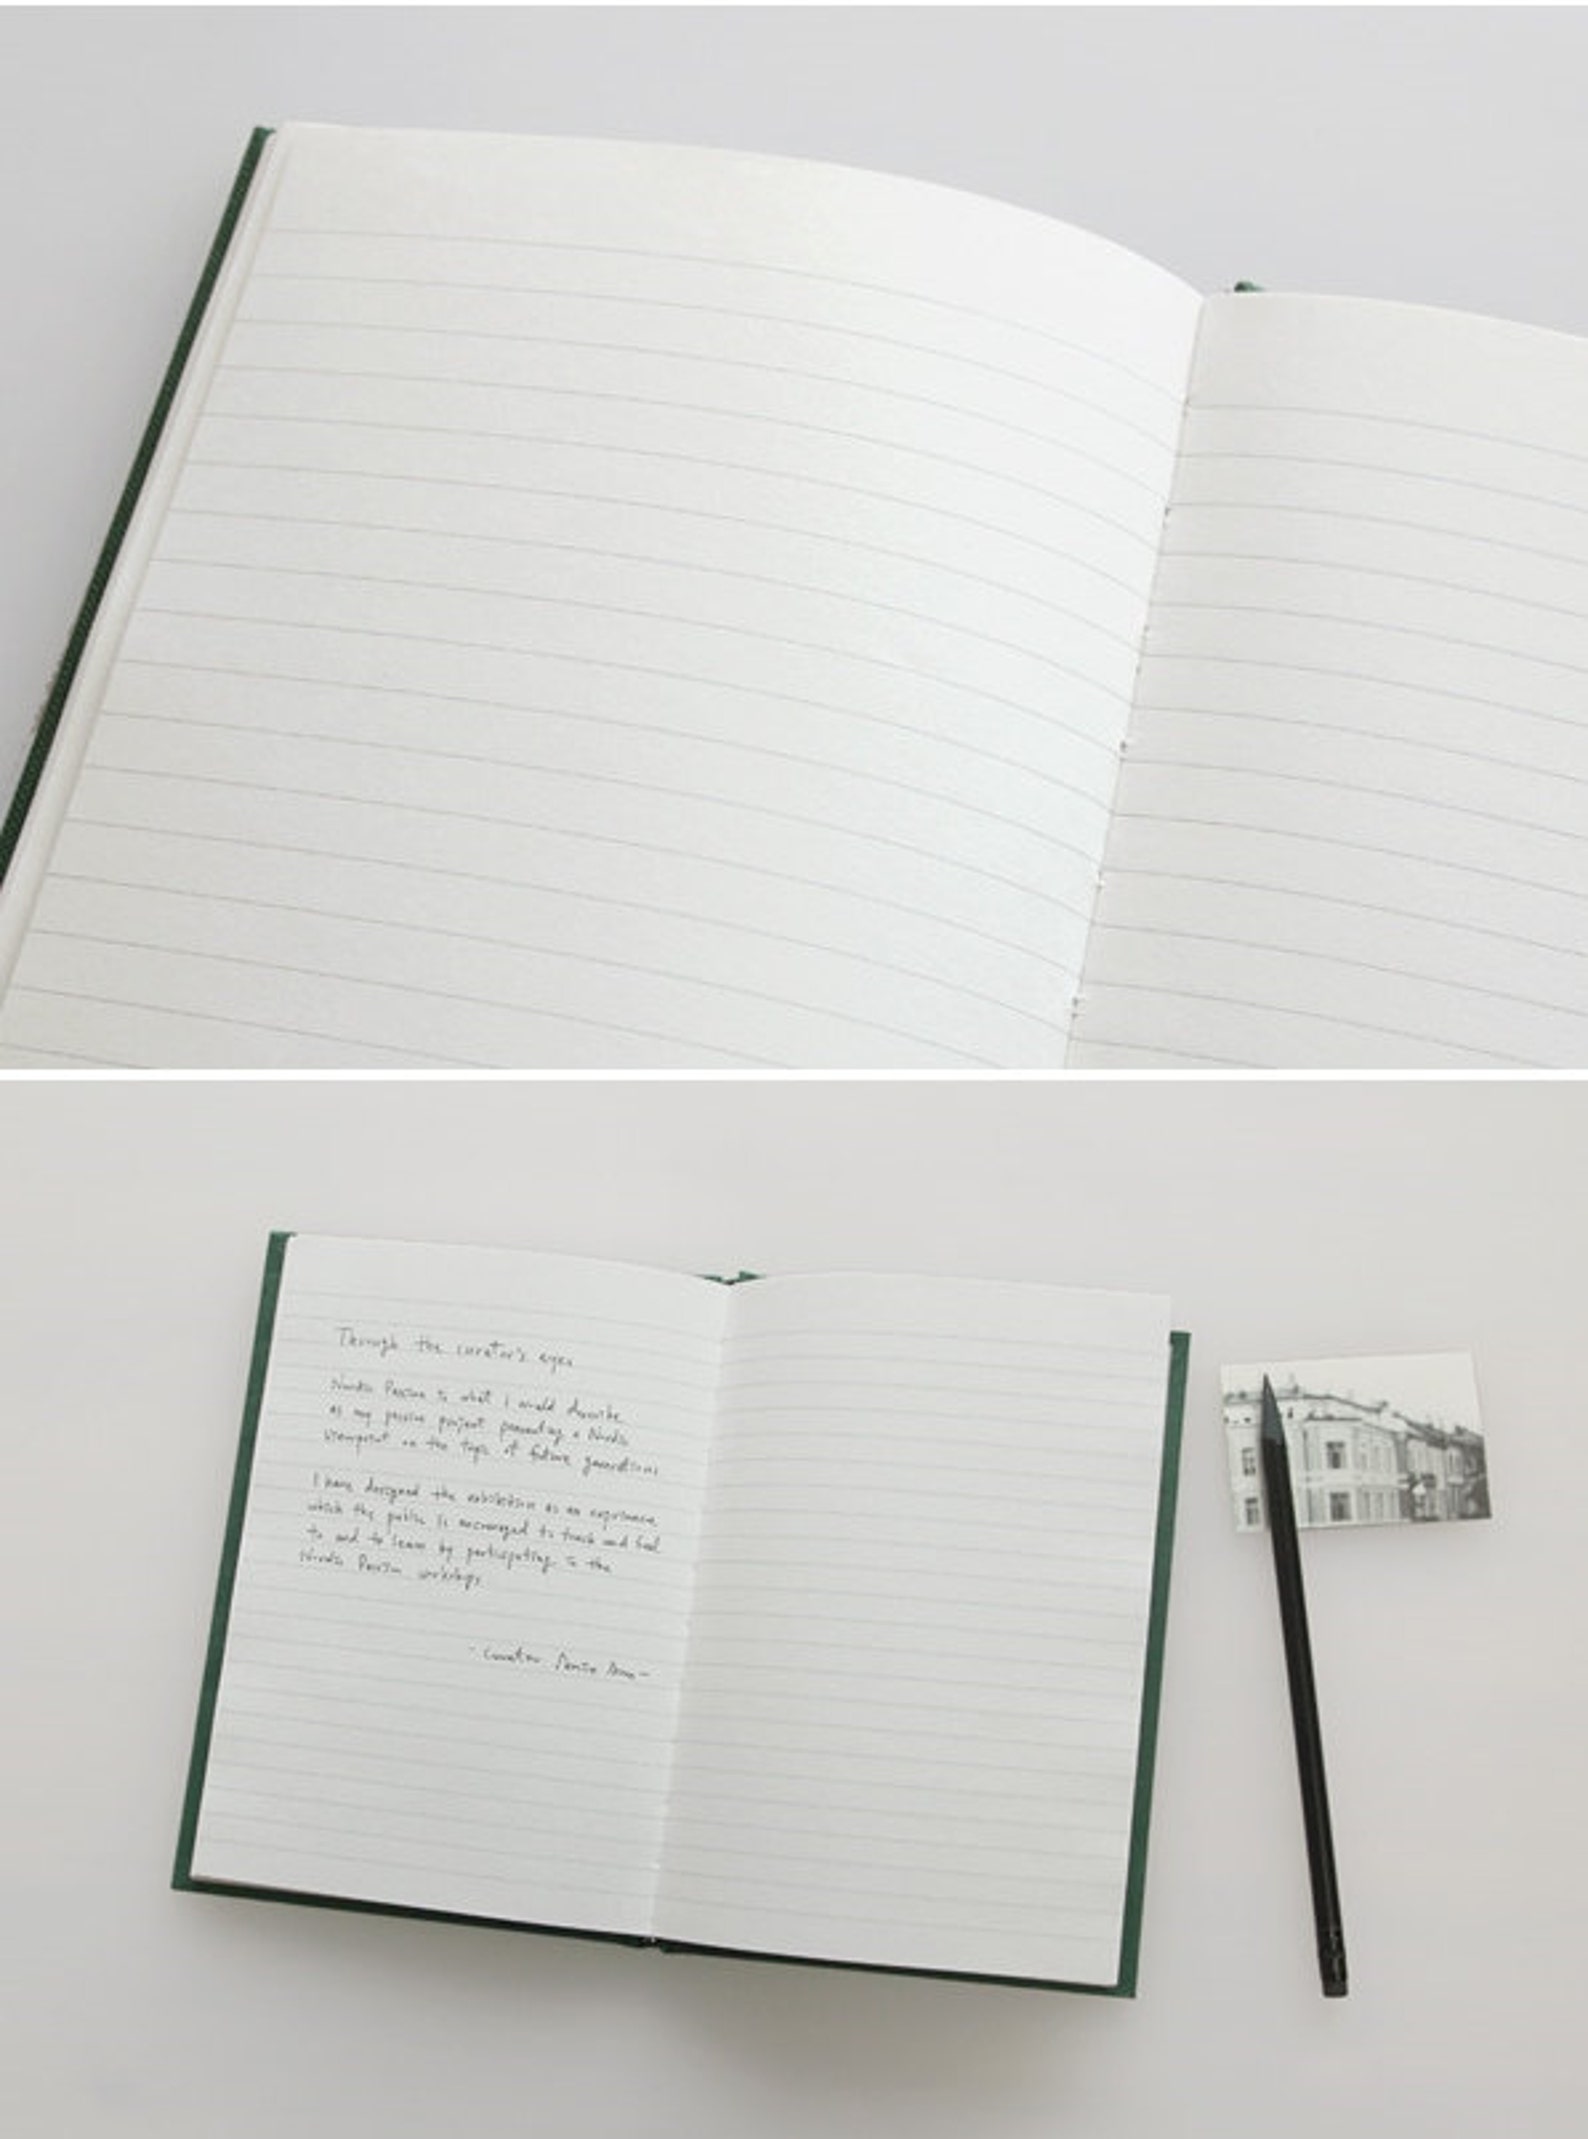 Through the curator's eyes
Nordic Passion is what I would describe
as my passion project presenting a Nordic
viewpoint on the topic of future generations
I have designed the exhibition as an experience
which the public is encouraged to touch and feel
to and to learn by participating in the
Nordic Passion workshops
- Curator